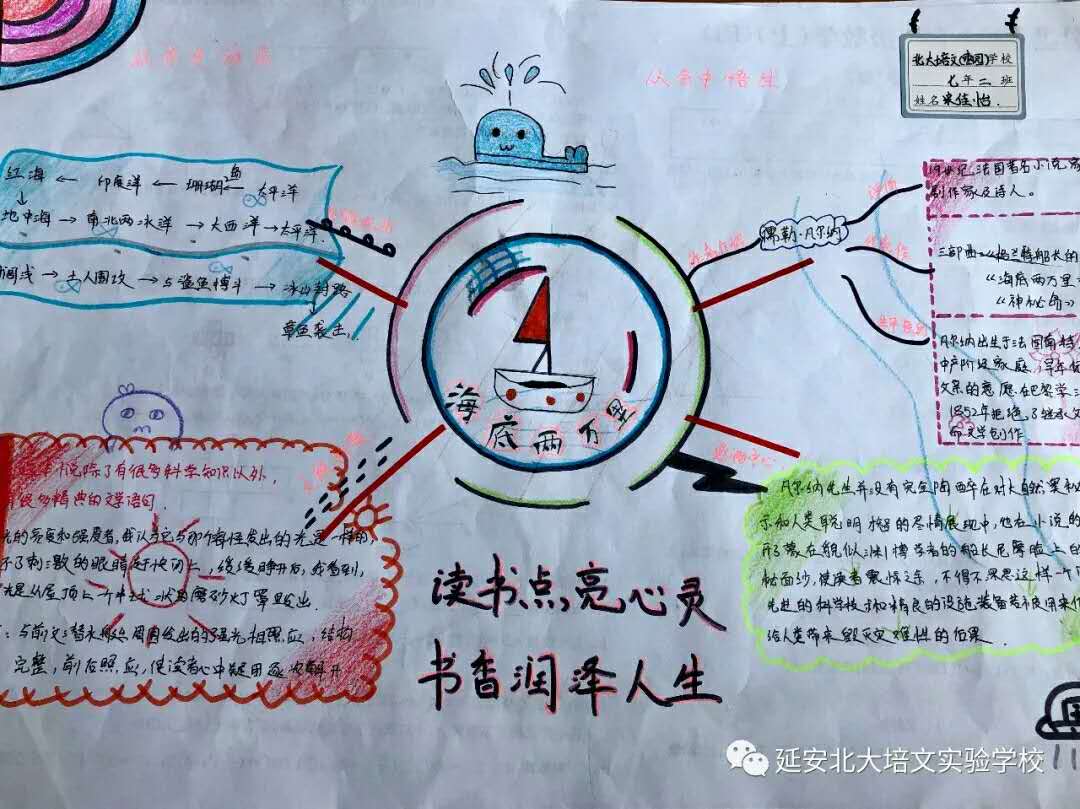 北大培文(枣园)学校
七年二班
姓名
从书中悟生
红海 ← 印度洋 ← 珊瑚岛 ← 太平洋
↓
地中海 → 南北两冰洋 → 大西洋 → 太平洋.
搁浅 → 土人围攻 → 与鲨鱼搏斗 → 冰山封路
↓
章鱼袭击
儒勒·凡尔纳
评价
19世纪,法国著名小说家
剧作家及诗人。
代表作
三部曲:《格兰特船长的
《海底两万里
《神秘岛》
凡尔纳出生于法国南特
中产阶级家庭,早年依
父亲的意愿在巴黎学
1852年拒绝了继承父
而文学创作
海底两万里
除了有很多科学知识以外,
很多精典的文学语句.
光的亮度和强度看,我认为它与那个每怪发出的光是一样的,
了刺激的眼睛赶快闭上,缓缓睁开后,我看到,
光是从屋顶上一个半球状的磨砂灯罩发出.
:与前文潜水船四周发出的强光相照应,结构
完整,前后照应,使读者心中疑团逐次解开
思想中心
凡尔纳先生并没有完全陶醉在对大自然奥秘
示和人类聪明才智的尽情展现中,他在小说的
形落在貌似冰川博学者的船长尼摩脸上的
秘面纱,使读者震惊之余,不得不深思这样一个
先进的科学技术和精良的设施装备若被用来作
给人类带来毁灭灾难性的后果
读书点亮心灵
书香润泽人生
延安北大培文实验学校